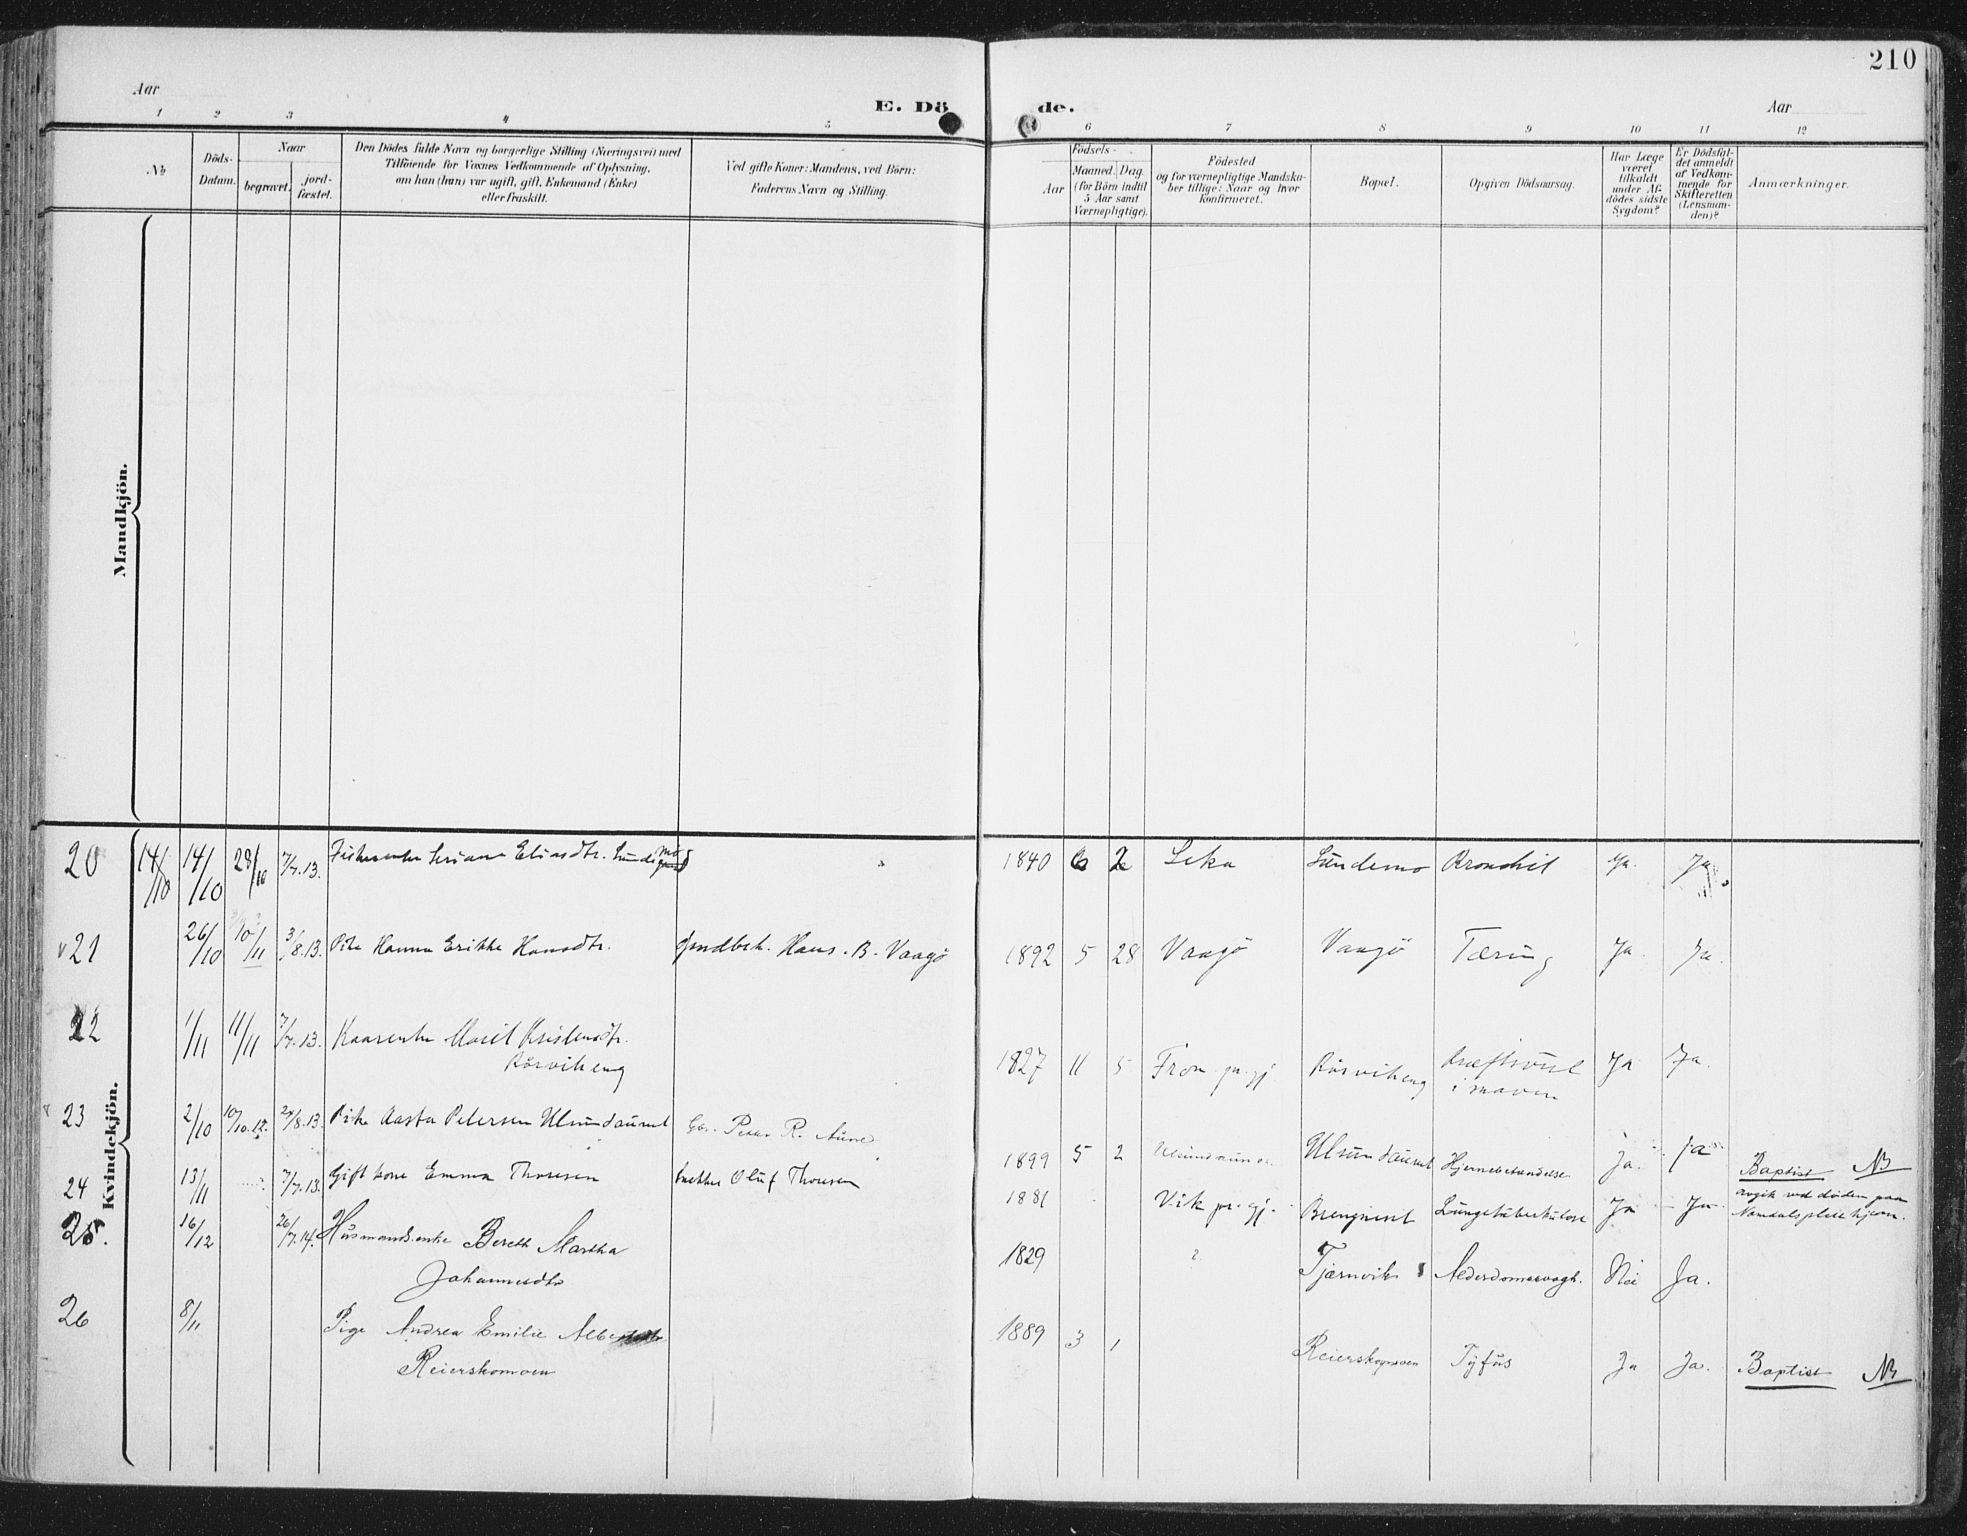 210
Aar
E. Dö de.
Aar
1 2 3 4 5 6 7 8 9 10 11 12
No
Döds-
Datum.
Naar
begravet.
jord-
fæstet.
Den Dödes fulde Navn og borgerlige Stilling (Næringsvei) med
Tilföiende for Voxnes Vedkommende af Oplysning,
om han (hun) var ugift, gift, Enkemand (Enke)
eller fraskilt.
Ved gifte Koner: Mandens, ved Börn:
Faderens Navn og Stilling.
Födsels-
Aar
Maaned.
Dag.
(for Börn indtil
5 Aar samt
Værnepligtige).
Födested
og for værnepligtige Mandska-
ber tillige: Naar og hvor
konfirmeret.
Bopæl.
Opgiven Dödsaarsag.
Har Læge
været
tilkaldt
under Af-
dödes sidste
Sygdom?
Er Dödsfal-
det anmeldt
af Vedkom-
mende for
Skifteretten
(Lensman-
den)?
Anmærkninger.
Mandkjön.
Kvindekjön.
20 14/10 14/10 28/10 7/7.13. Eliasdtr. 1840 6 2 Leka Sundemo Bronchit Ja. Ja.
21 26/10 10/11 3/8.13. Pike Hanna Erikke Hansdtr. Hans. B. Vaagö 1892 5 28 Vaagö Vaagö Tæring Ja. Ja.
22 1/11 11/11 7/7.13. Kaarenke Marit
Rörvikeng 1827 11 5 pr. gj. Rörvikeng Kræftsvul
i maven Ja Ja.
23 2/10 10/10.12. 8.13. Pike Aasta Petersen Ulsundaunet Peter R. Aune 1899 5 2 Ulsundaunet Hjernebetændelse Ja. Ja Baptist NB
24 13/11 7/7.13. Gift kone Emma Thoresen Oluf Thoresen 1881 Vik pr. gj. Lungetuberkulose Ja Ja avgik ved døden paa
Namdals pleiehjem.
25. 16/12 26/7.14. Husmandsenke Bereth Martha
Johannesdtr 1829 ? Tjærnvik Alderdomssvagh. Nei Ja.
26 8/11 Pige Andrea Emilie
Reierskomoen 1889 3 1 Reierskogmoen Tyfus Ja Ja. Baptist NB